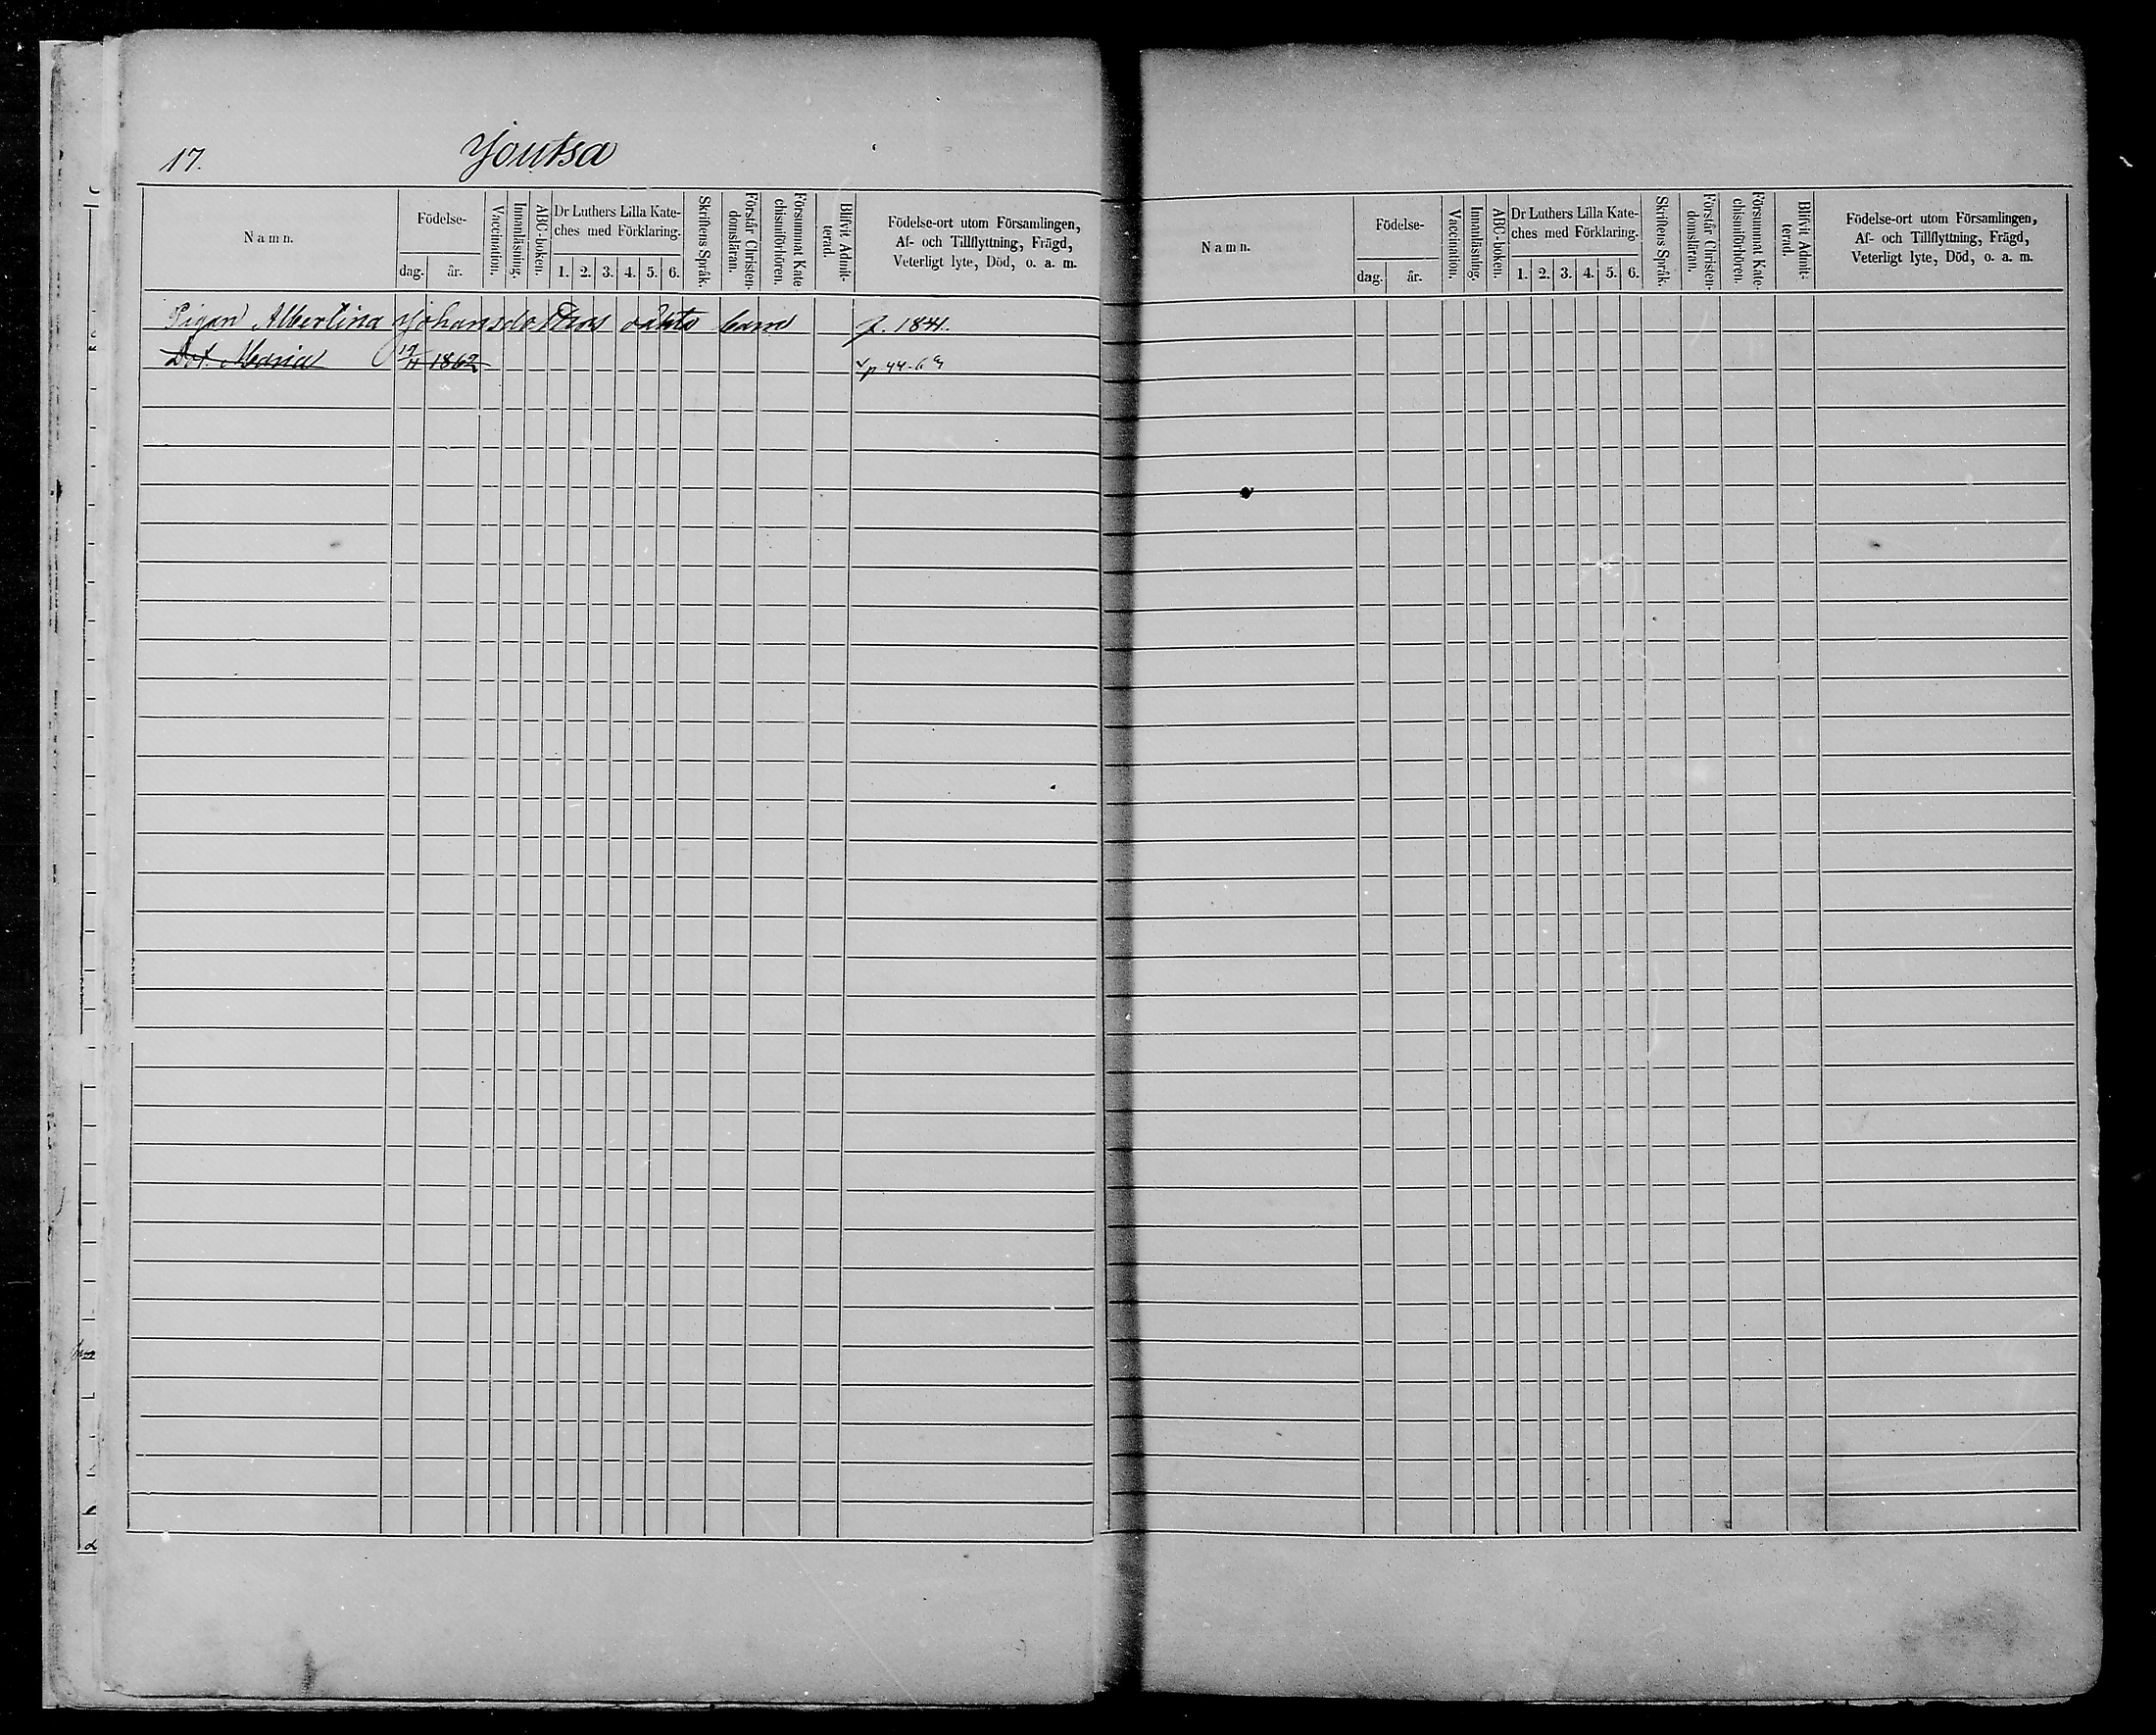 17. Joutsa
Namn.
Födelse-
dag. år.
Vaccination.
Innanläsning.
ABC-boken.
Dr Luthers Lilla Kate-
ches med Förklaring.
1. 2. 3. 4. 5. 6.
Skriftens Språk.
Förstår Christen-
domsläran.
Försummat Kate-
chismiförhören.
Blifvit Admit-
terad.
Födelse-ort utom Församlingen,
Af- och Tillflyttning, Frägd,
Veterligt lyte, Död, o. a. m.
Pigan Albertina Johansdotters oäkta barn f. 1841.
Dot. Maria 1862
Namn.
Födelse-
dag. år.
Vaccination.
Innanläsning.
ABC-boken.
Dr Luthers Lilla Kate-
ches med Förklaring.
1. 2. 3. 4. 5. 6.
Skriftens Språk.
Förstår Christen-
domsläran.
Försummat Kate-
chismiförhören.
Blifvit Admit-
terad.
Födelse-ort utom Församlingen,
Af- och Tillflyttning, Frägd,
Veterligt lyte, Död, o. a. m.